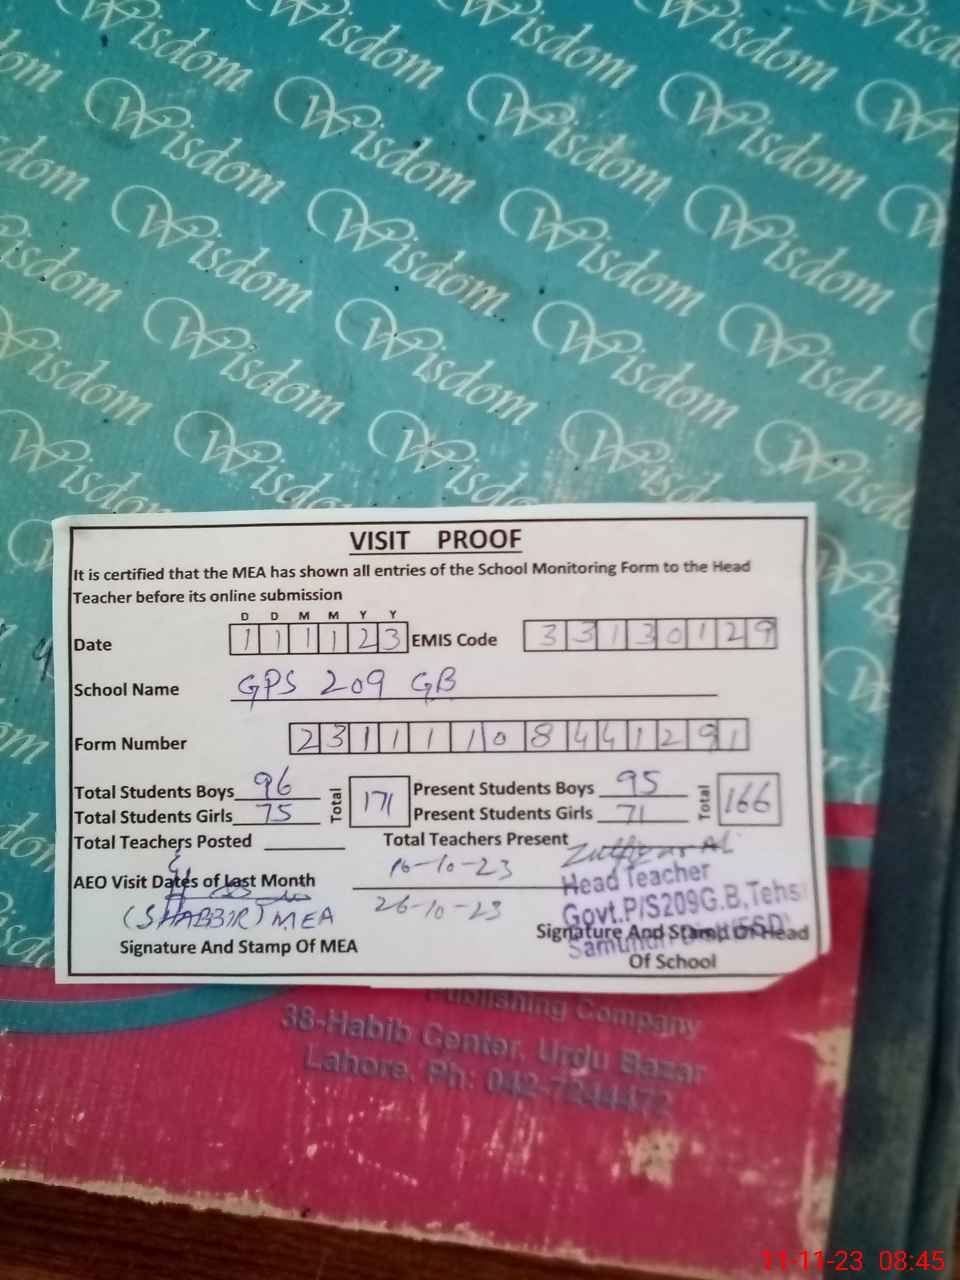 Wisdom Wisdom Wisdom Wisdom
Wisdom Wisdom Wisdom Wisdom
Wisdom Wisdom Wisdom Wisdom
Wisdom Wisdom Wisdom Wisdom
Wisdom Wisdom Wisdom Wisdom
VISIT PROOF
It is certified that the MEA has shown all entries of the School Monitoring Form to the Head
Teacher before its online submission
D D M M Y Y
Date 1 1 1 1 2 3 EMIS Code 3 3 1 3 0 1 2 9
School Name GPS 209 GB
Form Number 2 3 1 1 1 1 0 8 4 4 1 2 9 1
Total Students Boys 96 Total 171 Present Students Boys 95 Total 166
Total Students Girls 75 Present Students Girls 71
Total Teachers Posted Total Teachers Present
Zulfiqar Ali
AEO Visit Dates of Last Month 16-10-23
Head Teacher
26-10-23
Govt.P/S209G.B.Tehs
(SHABBIR) MEA
Signature And Stamp Of MEA
Signature And Stamp Of Head
Samundri Distt(FSD)
Of School
Publishing Company
38-Habib Center, Urdu Bazar
Lahore. Ph: 042-7244472
11-11-23 08:45